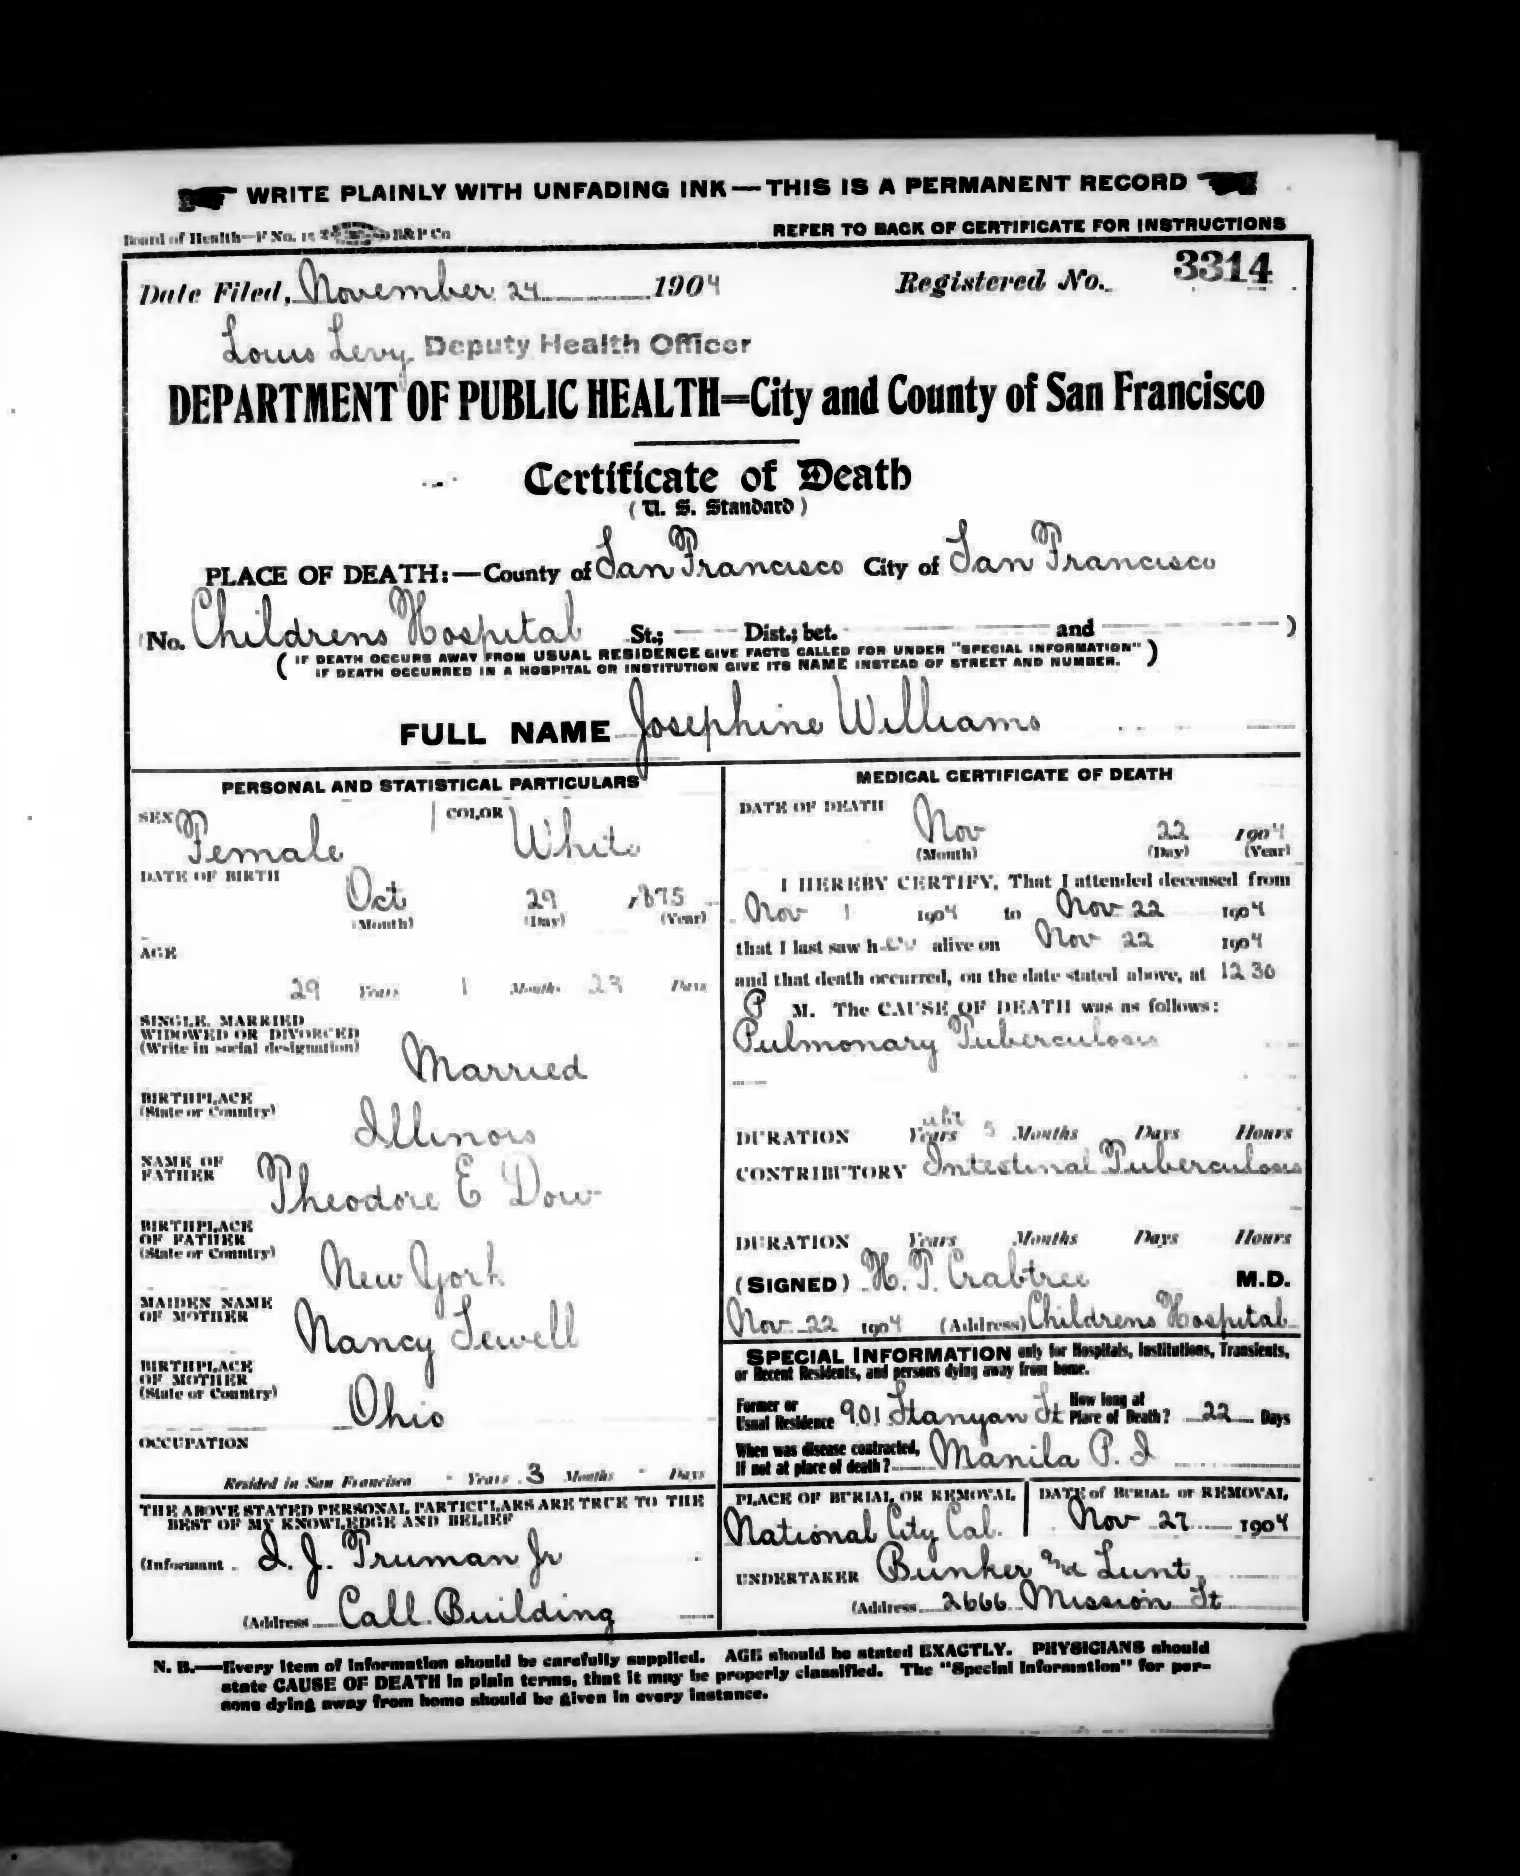 WRITE PLAINLY WITH UNFADING INK—THIS IS A PERMANENT RECORD
Board of Health—F No. 15 B&P Co
REFER TO BACK OF CERTIFICATE FOR INSTRUCTIONS
Date Filed, November 24 1904 Registered No. 3314
Louis Levy Deputy Health Officer
DEPARTMENT OF PUBLIC HEALTH=City and County of San Francisco
Certificate of Death
(U. S. Standard)
PLACE OF DEATH:—County of San Francisco City of San Francisco
(No. Childrens Hospital St.; Dist.; bet. and )
(IF DEATH OCCURS AWAY FROM USUAL RESIDENCE GIVE FACTS CALLED FOR UNDER "SPECIAL INFORMATION"
IF DEATH OCCURRED IN A HOSPITAL OR INSTITUTION GIVE ITS NAME INSTEAD OF STREET AND NUMBER.)
FULL NAME Josephine Williams
PERSONAL AND STATISTICAL PARTICULARS
SEX Female COLOR White
DATE OF BIRTH
Oct 29 1875
(Month) (Day) (Year)
AGE
29 Years 1 Months 23 Days
SINGLE, MARRIED
WIDOWED OR DIVORCED
(Write in social designation) Married
BIRTHPLACE
(State or Country) Illinois
NAME OF
FATHER Theodore E Dow
BIRTHPLACE
OF FATHER
(State or Country) New York
MAIDEN NAME
OF MOTHER Nancy Sewell
BIRTHPLACE
OF MOTHER
(State or Country) Ohio
OCCUPATION
Resided in San Francisco - Years 3 Months - Days
THE ABOVE STATED PERSONAL PARTICULARS ARE TRUE TO THE
BEST OF MY KNOWLEDGE AND BELIEF
(Informant I. J. Truman Jr
(Address Call Building
MEDICAL CERTIFICATE OF DEATH
DATE OF DEATH
Nov 22 1904
(Month) (Day) (Year)
I HEREBY CERTIFY, That I attended deceased from
Nov 1 1904 to Nov 22 1904
that I last saw her alive on Nov 22 1904
and that death occurred, on the date stated above, at 12 30
P M. The CAUSE OF DEATH was as follows:
Pulmonary Tuberculosis
DURATION Years 5 Months Days Hours
CONTRIBUTORY Intestinal Tuberculosis
DURATION Years Months Days Hours
(SIGNED) H. T. Crabtree M.D.
Nov. 22 1904 (Address) Childrens Hospital
SPECIAL INFORMATION only for Hospitals, Institutions, Transients,
or Recent Residents, and persons dying away from home.
Former or
Usual Residence 901 Stanyan St How long at
Place of Death? 22 Days
When was disease contracted,
If not at place of death? Manila P. I
PLACE OF BURIAL OR REMOVAL
National City Cal.
DATE of BURIAL or REMOVAL
Nov 27 1904
UNDERTAKER Bunker and Lunt
(Address 2666 Mission St
N. B.—Every item of information should be carefully supplied. AGE should be stated EXACTLY. PHYSICIANS should
state CAUSE OF DEATH in plain terms, that it may be properly classified. The "Special Information" for per-
sons dying away from home should be given in every instance.